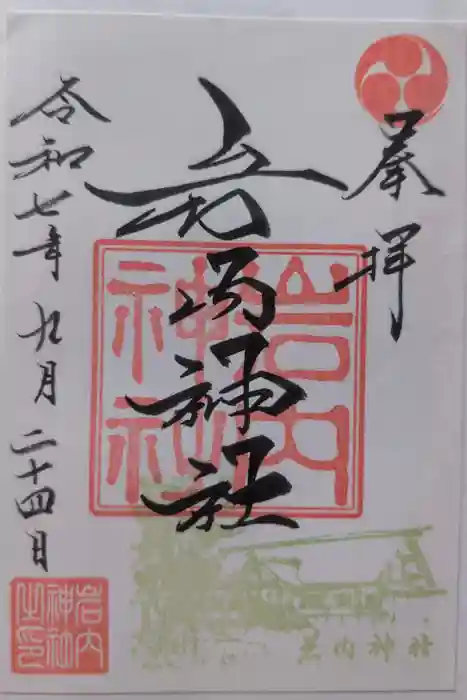 奉拝
神社
岩内
神社
令和七年九月二十四日
岩内
神社
之印
岩内神社